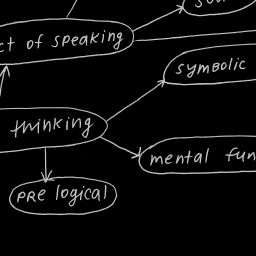 ct of speaking
symbolic
thinking
mental fun
pre logical